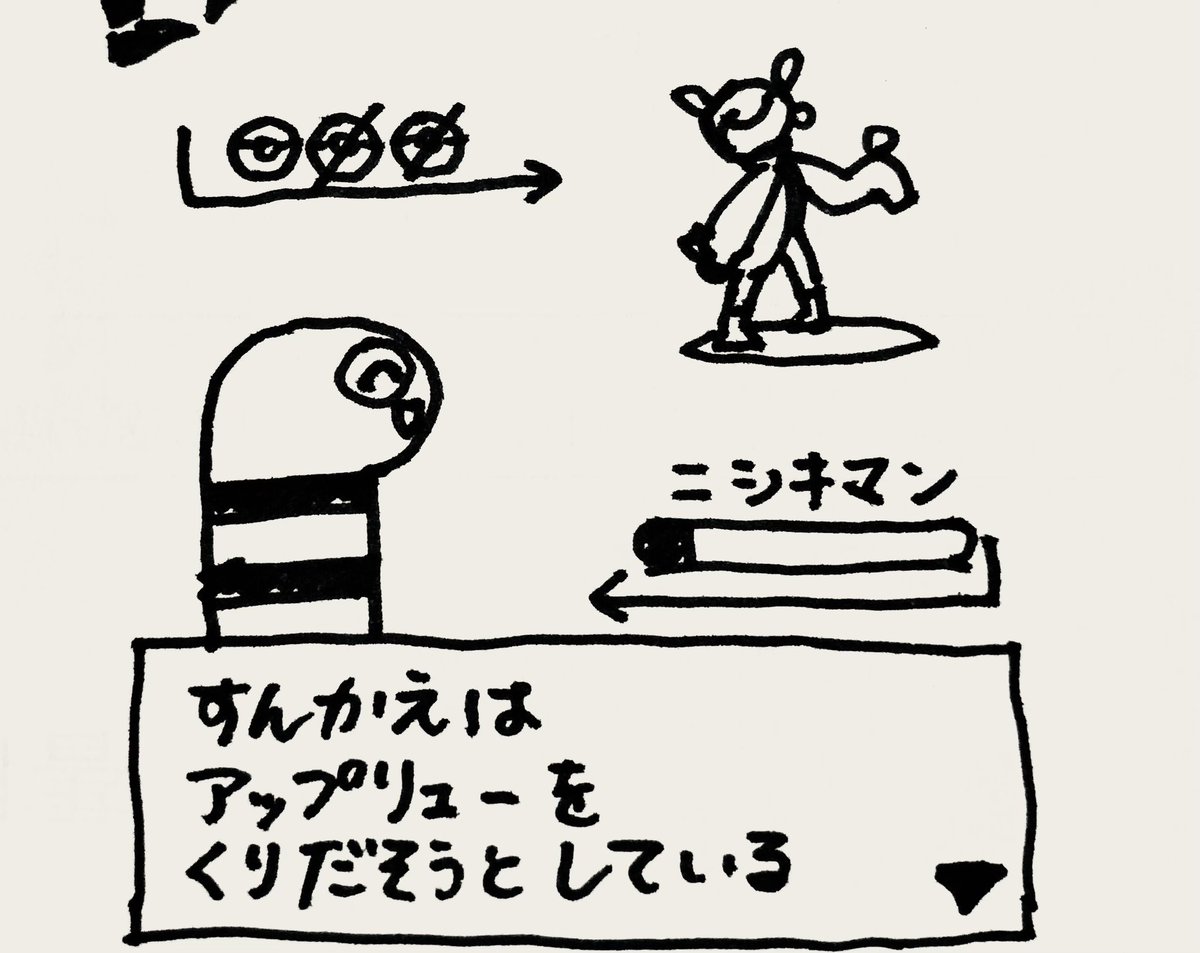 ニシキマン
すんかえは
アップリューを
くりだそうとしている